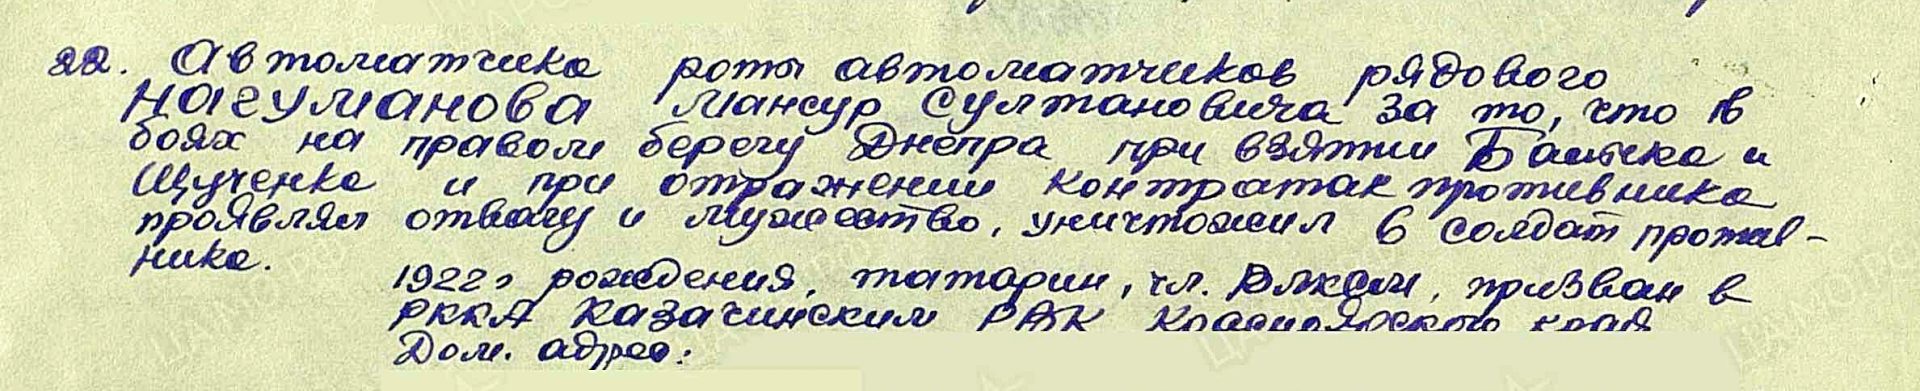 22. Автоматчика роты автоматчиков рядового
НАГУМАНОВА Мансур Султановича за то, что в
боях на правом берегу Днепра при взятии Балыка и
Щученка и при отражении контратак противника
проявлял отвагу и мужество, уничтожил 6 солдат против-
ника.
1922 г рождения, татарин, чл. ВЛКСМ, призван в
РККА Казачинским РВК Красноярского края
Дом. адрес: